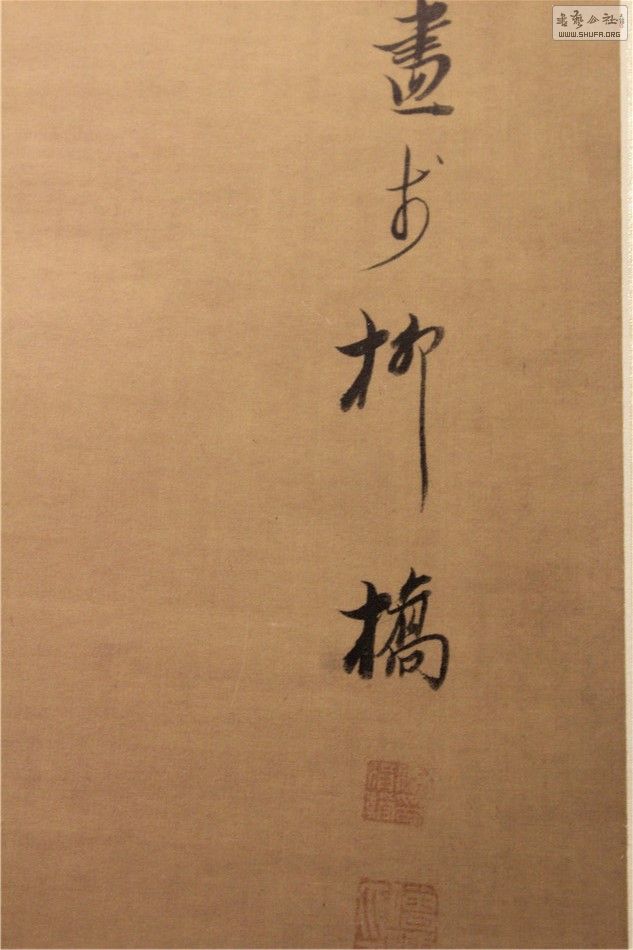 書藝公社
WWW.SHUFA.ORG
畫於柳橋